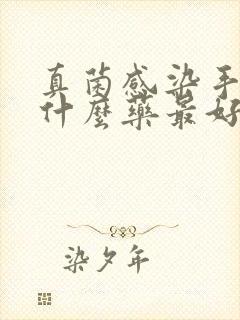 真菌感染手
什麼藥最好
染夕年